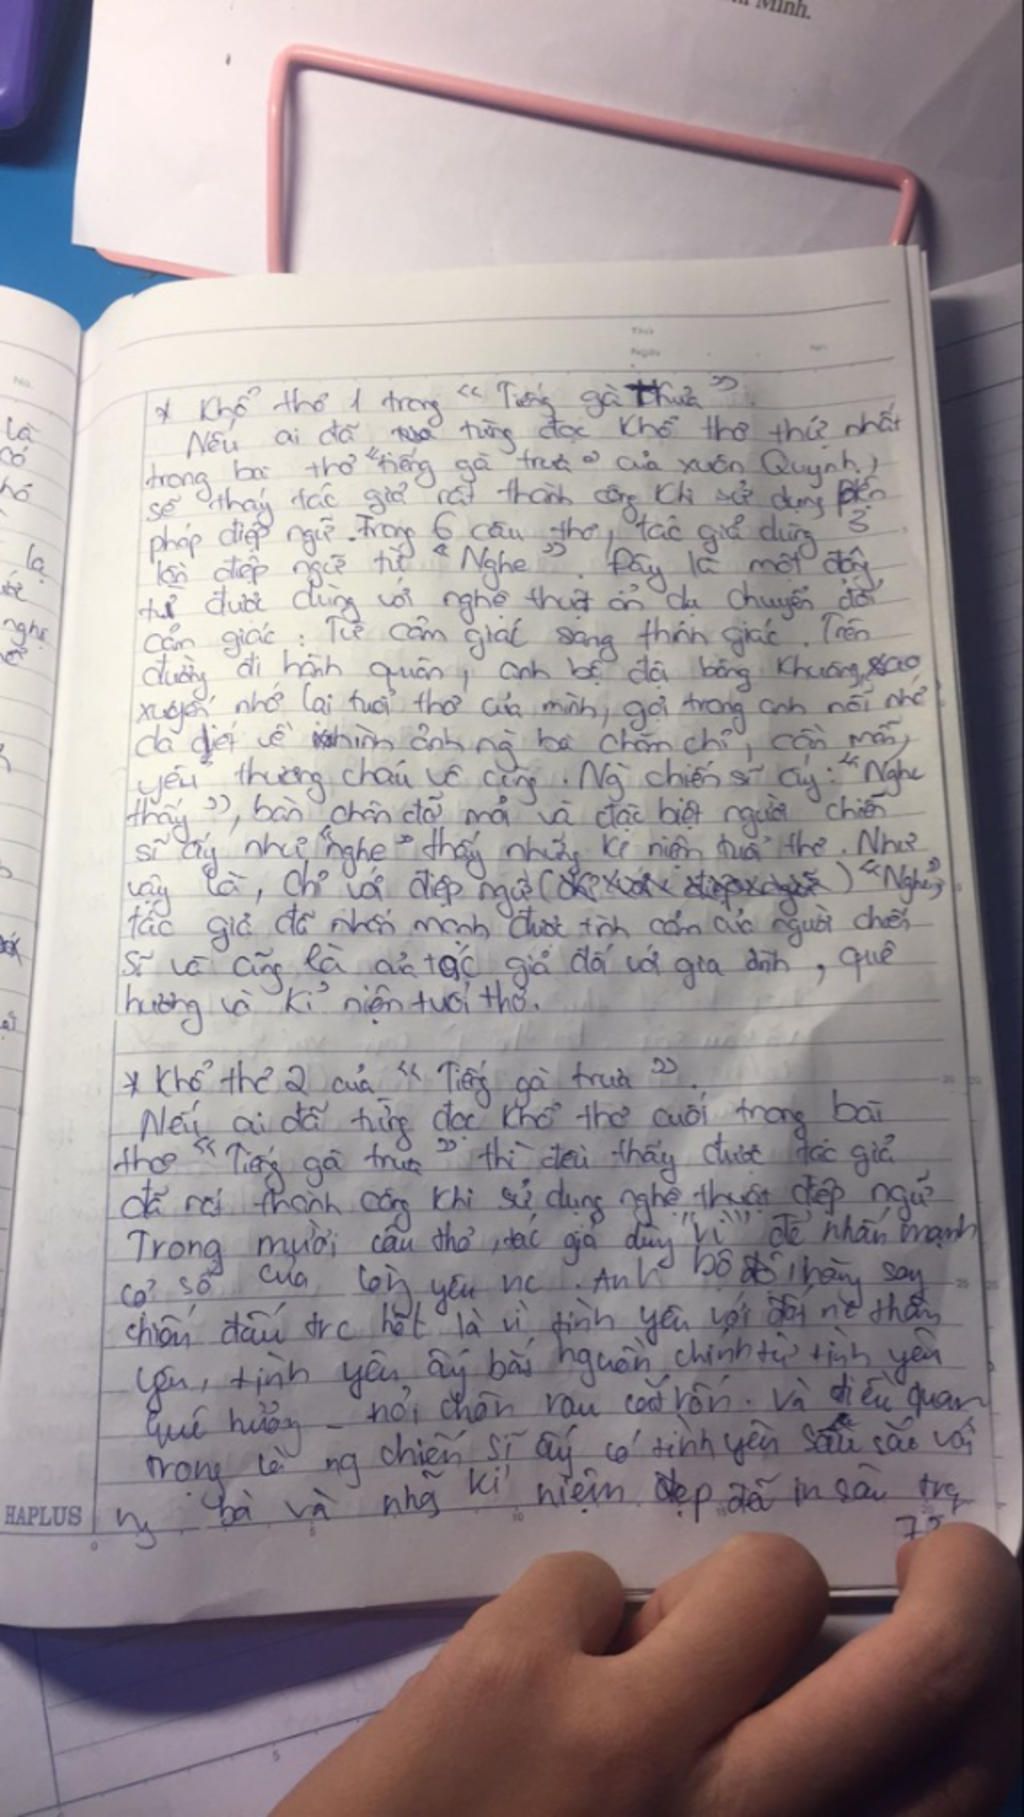 Minh.
Thứ
Ngày
No.
* Khổ thơ 1 trong "Tiếng gà trưa"
Nếu ai đã từng đọc khổ thơ thứ nhất
trong bài thơ "tiếng gà trưa" của xuân Quỳnh,
sẽ thấy tác giả rất thành công khi sử dụng biện
pháp điệp ngữ. Trong 6 câu thơ, tác giả dùng 3
lần điệp ngữ từ "Nghe". Đây là một động
từ được dùng với nghệ thuật ẩn dụ chuyển đổi
cảm giác: Từ cảm giác sang thính giác. Trên
đường đi hành quân, anh bộ đội bâng khuâng, xao
xuyến nhớ lại tuổi thơ của mình, gợi trong anh nỗi nhớ
da diết về hình ảnh ng bà chăm chỉ, cần mẫn,
yêu thương cháu vô cùng. Ng chiến sĩ ấy: "Nghe
thấy", bàn chân đỡ mỏi và đặc biệt người chiến
sĩ ấy như "nghe" thấy những kỉ niệm tuổi thơ. Như
vậy là, chỉ với điệp ngữ "Nghe",
tác giả đã nhấn mạnh được tình cảm của người chiến
sĩ và cũng là của tác giả đối với gia đình, quê
hương và kỉ niệm tuổi thơ.
* Khổ thơ 2 của "Tiếng gà trưa".
Nếu ai đã từng đọc khổ thơ cuối trong bài
thơ "Tiếng gà trưa" thì đều thấy được tác giả
đã rất thành công khi sử dụng nghệ thuật điệp ngữ
Trong mười câu thơ, tác giả dùng "Vì" để nhấn mạnh
cơ sở của lòng yêu nc. Anh bộ đội hăng say
chiến đấu trc hết là vì tình yêu với đất nc thân
yêu, tình yêu ấy bắt nguồn chính từ tình yêu
quê hương - nơi chôn rau cắt rốn. Và điều quan
trọng là ng chiến sĩ ấy có tình yêu sâu sắc với
ng bà và nhg kỉ niệm đẹp đã in sâu trg
HAPLUS